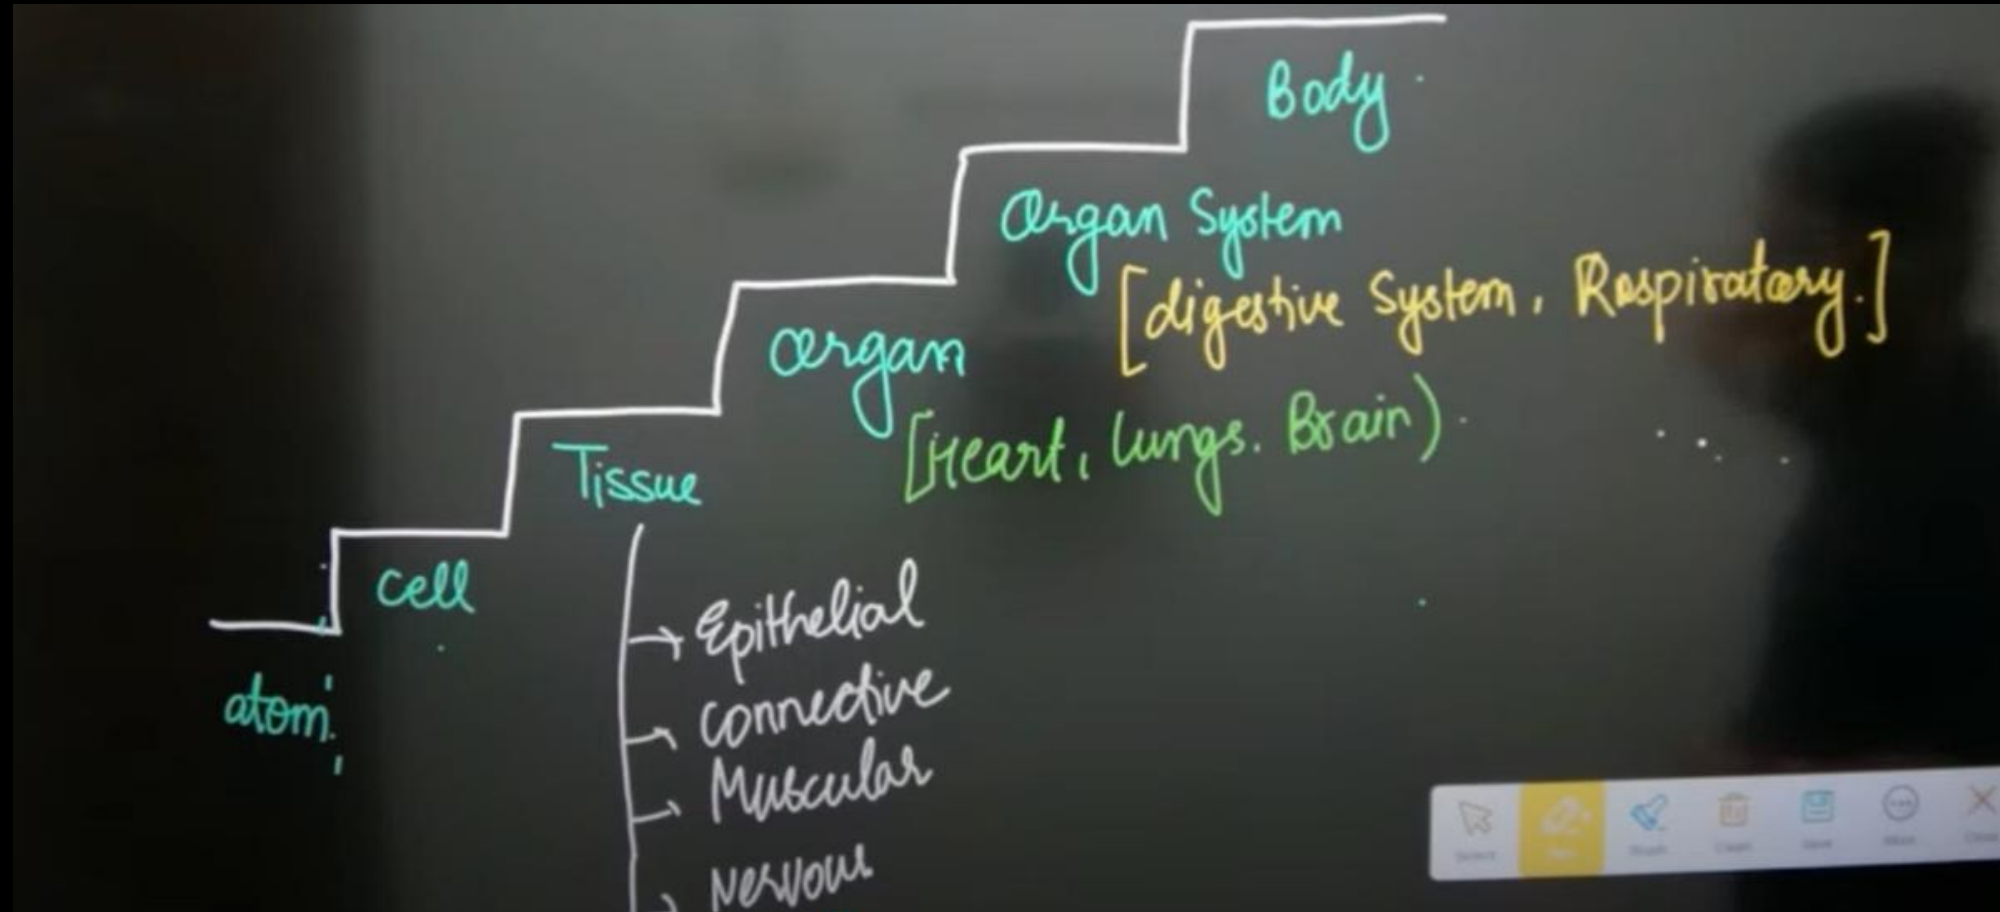 Body
Organ System
[digestive System, Respiratory.]
Organ
[Heart, lungs. Brain)
Tissue
cell
atom
→ Epithelial
→ connective
→ Muscular
→ Nervous
Select
Clean
Save